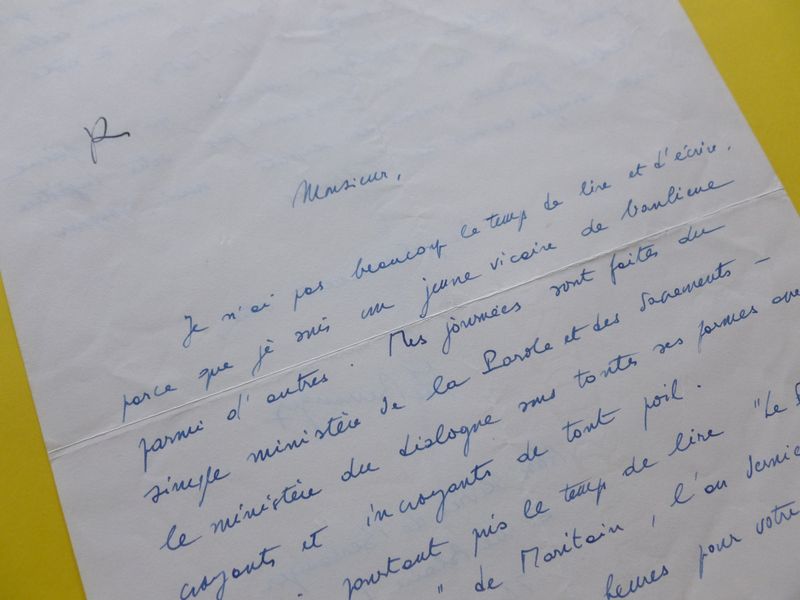 Monsieur,
Je n'ai pas beaucoup le temps de lire et d'écrire,
parce que je suis un jeune vicaire de banlieue
parmi d'autres. Mes journées sont faites du
simple ministère de la Parole et des Sacrements –
le ministère du dialogue sous toutes ses formes avec
croyants et incroyants de tout poil.
pourtant pris le temps de lire "Le
" de Maritain, l'an dernier
heures pour votre